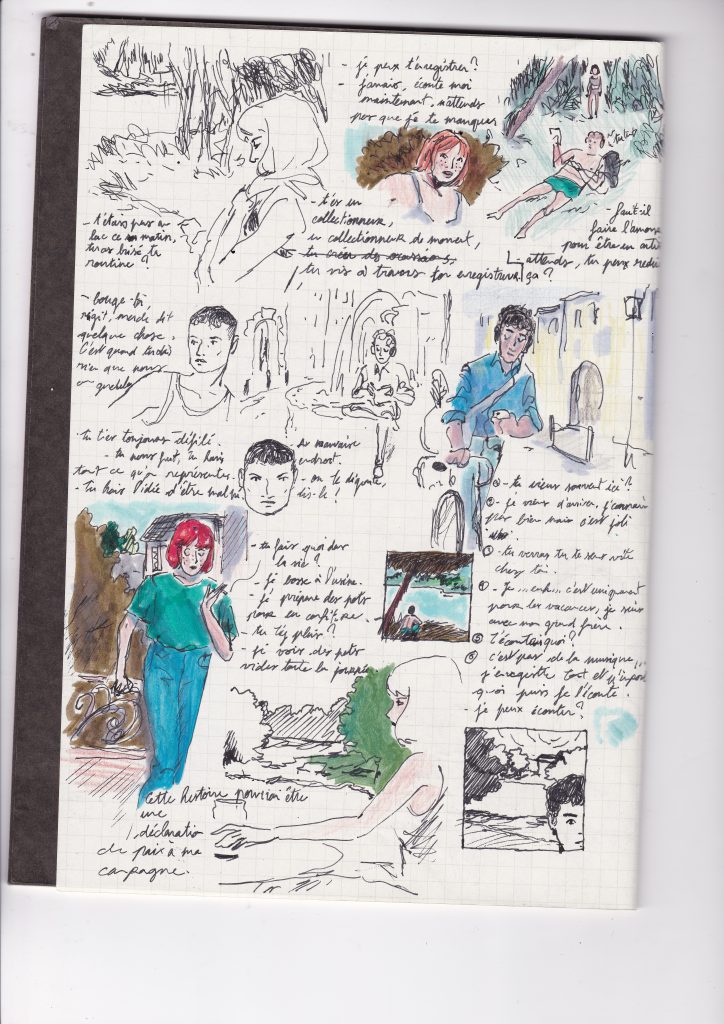 - je peux t'enregistrer?
- Jamais, écoute moi
maintenant, n'attends
pas que je te manques
- t'étais pas au
lac ce matin,
tu as brisé ta
routine?
- t'es un
collectionneur,
un collectionneur de moment,
tu vis à travers ton enregistreur
- faut-il
faire l'amour
pour être un artiste
- attends, tu peux redire
ça?
- bouge-toi,
réagit, merde dit
quelque chose.
C'est quand tu dis
rien que nous
on
- tu t'es toujours défilé.
- tu nous fuit, tu hais
tout ce qu'on représente.
- tu hais l'idée d'être né au
mauvais
endroit.
- on te dégoute,
dis-le!
- tu fais quoi dans
la vie?
- je bosse à l'usine.
- je prépare des pots
pour en confiture.
- tu t'y plais?
- je vois des pots
vides toute la journée
- tu viens souvent ici?
- je viens d'arriver, j'connais
pas bien mais c'est joli
- tu verras tu te sens vite
chez toi.
- Je ...enfin... c'est uniquement
pour les vacances, je suis
avec mon grand frère.
- t'écoutais quoi?
- c'est pas de la musique...
j'enregistre tout et n'importe
quoi puis je l'écoute.
- je peux écouter?
Cette histoire pourrait être
une
déclaration
de paix à ma
campagne.